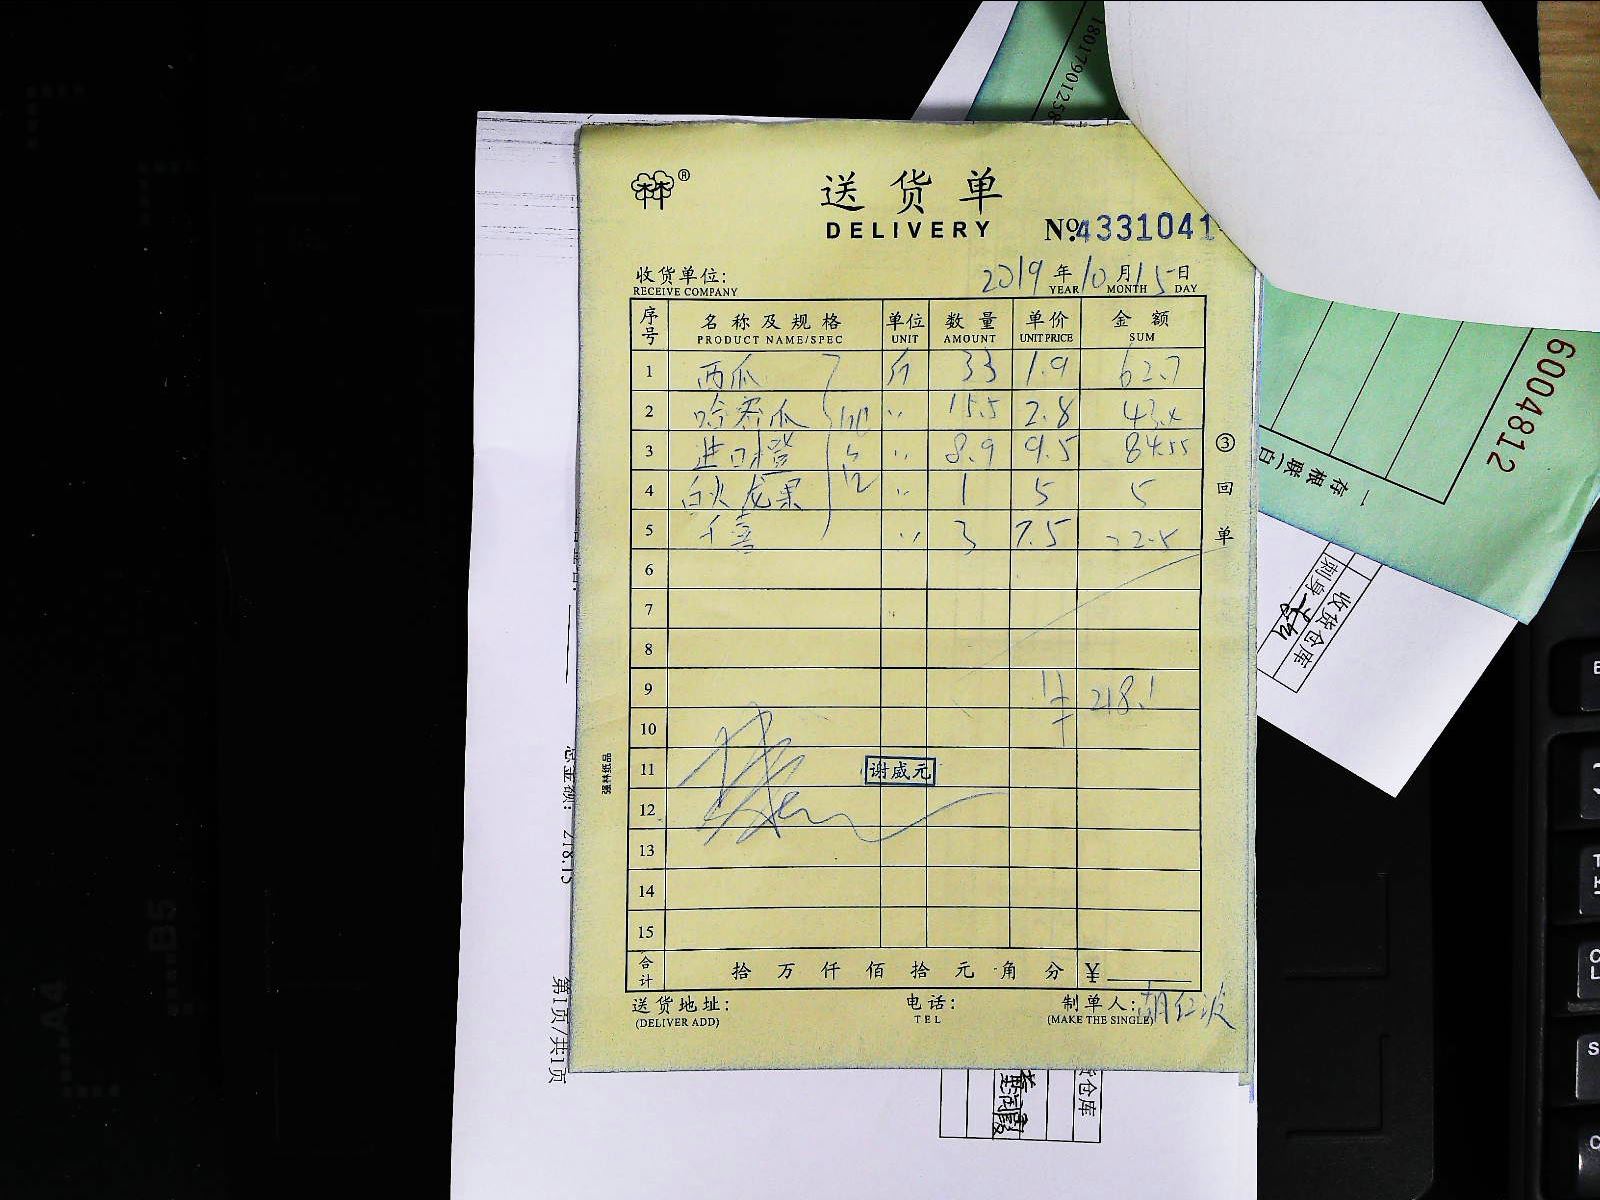 送货单
DELIVERY
№4331041
收货单位:
RECEIVE COMPANY
2019年10月15日
YEAR MONTH DAY
序号 名称及规格 单位 数量 单价 金额
PRODUCT NAME/SPEC UNIT AMOUNT UNIT PRICE SUM
1 西瓜 斤 33 1.9 62.7
2 哈密瓜 〃 15.5 2.8 43.4
3 进口橙 〃 8.9 9.5 84.55
4 白火龙果 〃 1 5 5
5 千禧 〃 3 7.5 22.5
6
7
8
9 218.1
10
11 谢威元
12
13
14
15
合计 拾万仟佰拾元角分 ¥
送货地址: 电话: 制单人: 胡仁波
(DELIVER ADD) TEL (MAKE THE SINGLE)
③回单
强林纸品
总金额: 218.15
第1页/共1页
18017901258
6004812
一存根联(白
收货仓库
刺身
仓库
A4
B5